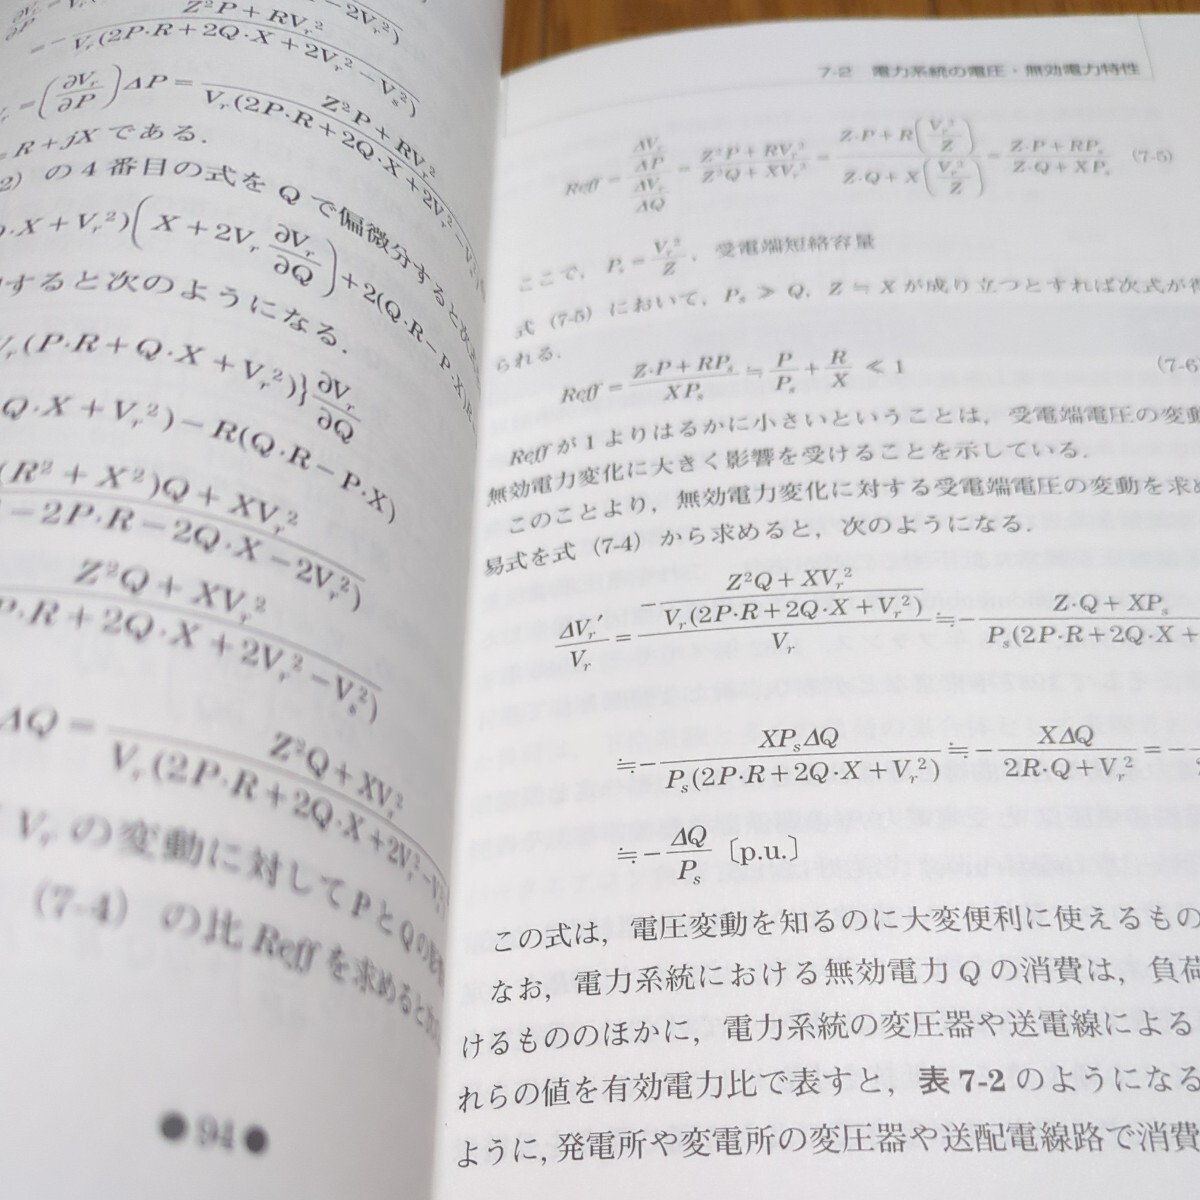 = -\frac{Z²P + RVr²}{Vr(2P·R + 2Q·X + 2Vr² - Vs²)}
= (∂Vr/∂P) ΔP = \frac{Z²P + RVr²}{Vr(2P·R + 2Q·X + 2Vr² - V
R + jX である.
2) の 4 番目の式を Q で偏微分すると次
·X + Vr²)(X + 2Vr ∂Vr/∂Q) + 2(Q·R - P·X)
すると次のようになる.
r(P·R + Q·X + Vr²)} ∂Vr/∂Q
Q·X + Vr²) - R(Q·R - P·X)
\frac{(R² + X²)Q + XVr²}{- 2P·R - 2Q·X - 2Vr²)}
\frac{Z²Q + XVr²}{P·R + 2Q·X + 2Vr² - Vs²)}
ΔQ = \frac{Z²Q + XVr²}{Vr(2P·R + 2Q·X + 2Vr² - V
Vr の変動に対して P と Q の
(7-4) の比 Reff を求めると
●94●
7-2 電力系統の電圧・無効電力特性
Reff = \frac{ΔVr/ΔP}{ΔVr/ΔQ} = \frac{Z²P + RVr²}{Z²Q + XVr²} = \frac{Z·P + R(Vr²/Z)}{Z·Q + X(Vr²/Z)} = \frac{Z·P + RPs}{Z·Q + XPs} (7-5)
ここで, Ps = Vr²/Z, 受電端短絡容量
式 (7-5) において, Ps ≫ Q, Z ≒ X が成り立つとすれば次式が得
られる.
Reff = \frac{Z·P + RPs}{XPs} ≒ \frac{P}{Ps} + \frac{R}{X} ≪ 1 (7-6
Reff が 1 よりはるかに小さいということは, 受電端電圧の変動
無効電力変化に大きく影響を受けることを示している.
このことより, 無効電力変化に対する受電端電圧の変動を求め
易式を式 (7-4) から求めると, 次のようになる.
\frac{ΔVr′}{Vr} = \frac{-\frac{Z²Q + XVr²}{Vr(2P·R + 2Q·X + Vr²)}}{Vr} ≒ -\frac{Z·Q + XPs}{Ps(2P·R + 2Q·X +
≒ -\frac{XPsΔQ}{Ps(2P·R + 2Q·X + Vr²)} ≒ -\frac{XΔQ}{2R·Q + Vr²} = -
≒ -\frac{ΔQ}{Ps} 〔p.u.〕
この式は, 電圧変動を知るのに大変便利に使えるもの
なお, 電力系統における無効電力 Q の消費は, 負荷
けるもののほかに, 電力系統の変圧器や送電線による
れらの値を有効電力比で表すと, 表 7-2 のようになる
ように, 発電所や変電所の変圧器や送配電線路で消費